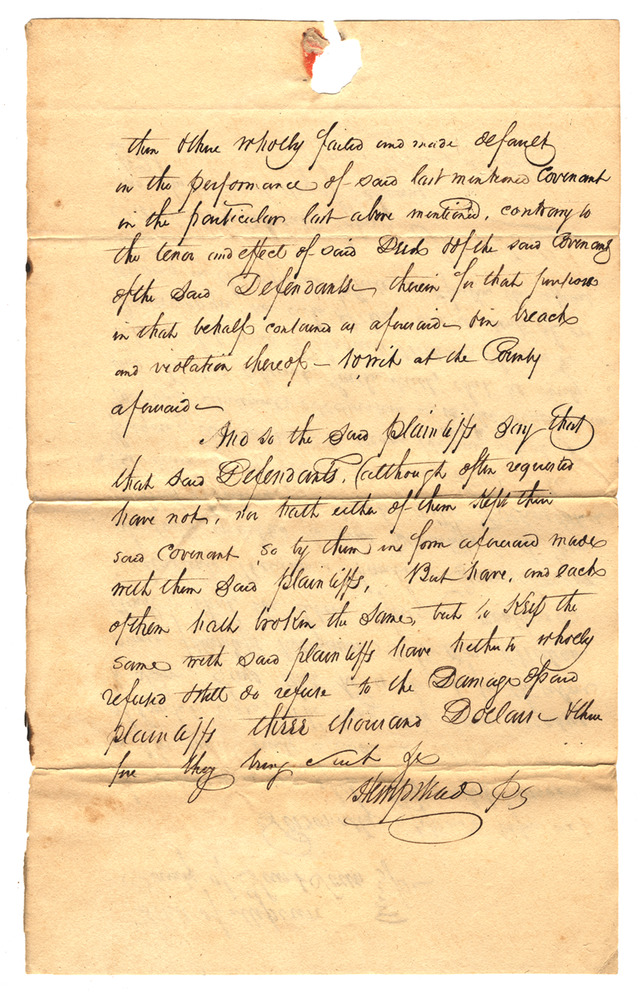 then & there wholly failed and made default
in the performance of said last mentioned Covenant
in the particular last above mentioned, contrary to
the tenor and effect of said Deed & of the said Covenant
of the said Defendants therein for that purpose
in that behalf contained as aforesaid & in breach
and violation thereof – towit at the County
aforesaid –
And so the said plaintiffs say that
that said Defendants, (although often requested
have not, nor hath either of them kept their
said covenant, so by them in form aforesaid made
with them said plaintiffs, But have, and each
of them hath broken the same, but to keep the
same with said plaintiffs have hitherto wholly
refused & still do refuse to the Damage of said
plaintiffs three thousand Dollars – & there
fore they bring suit &c
Hempstead